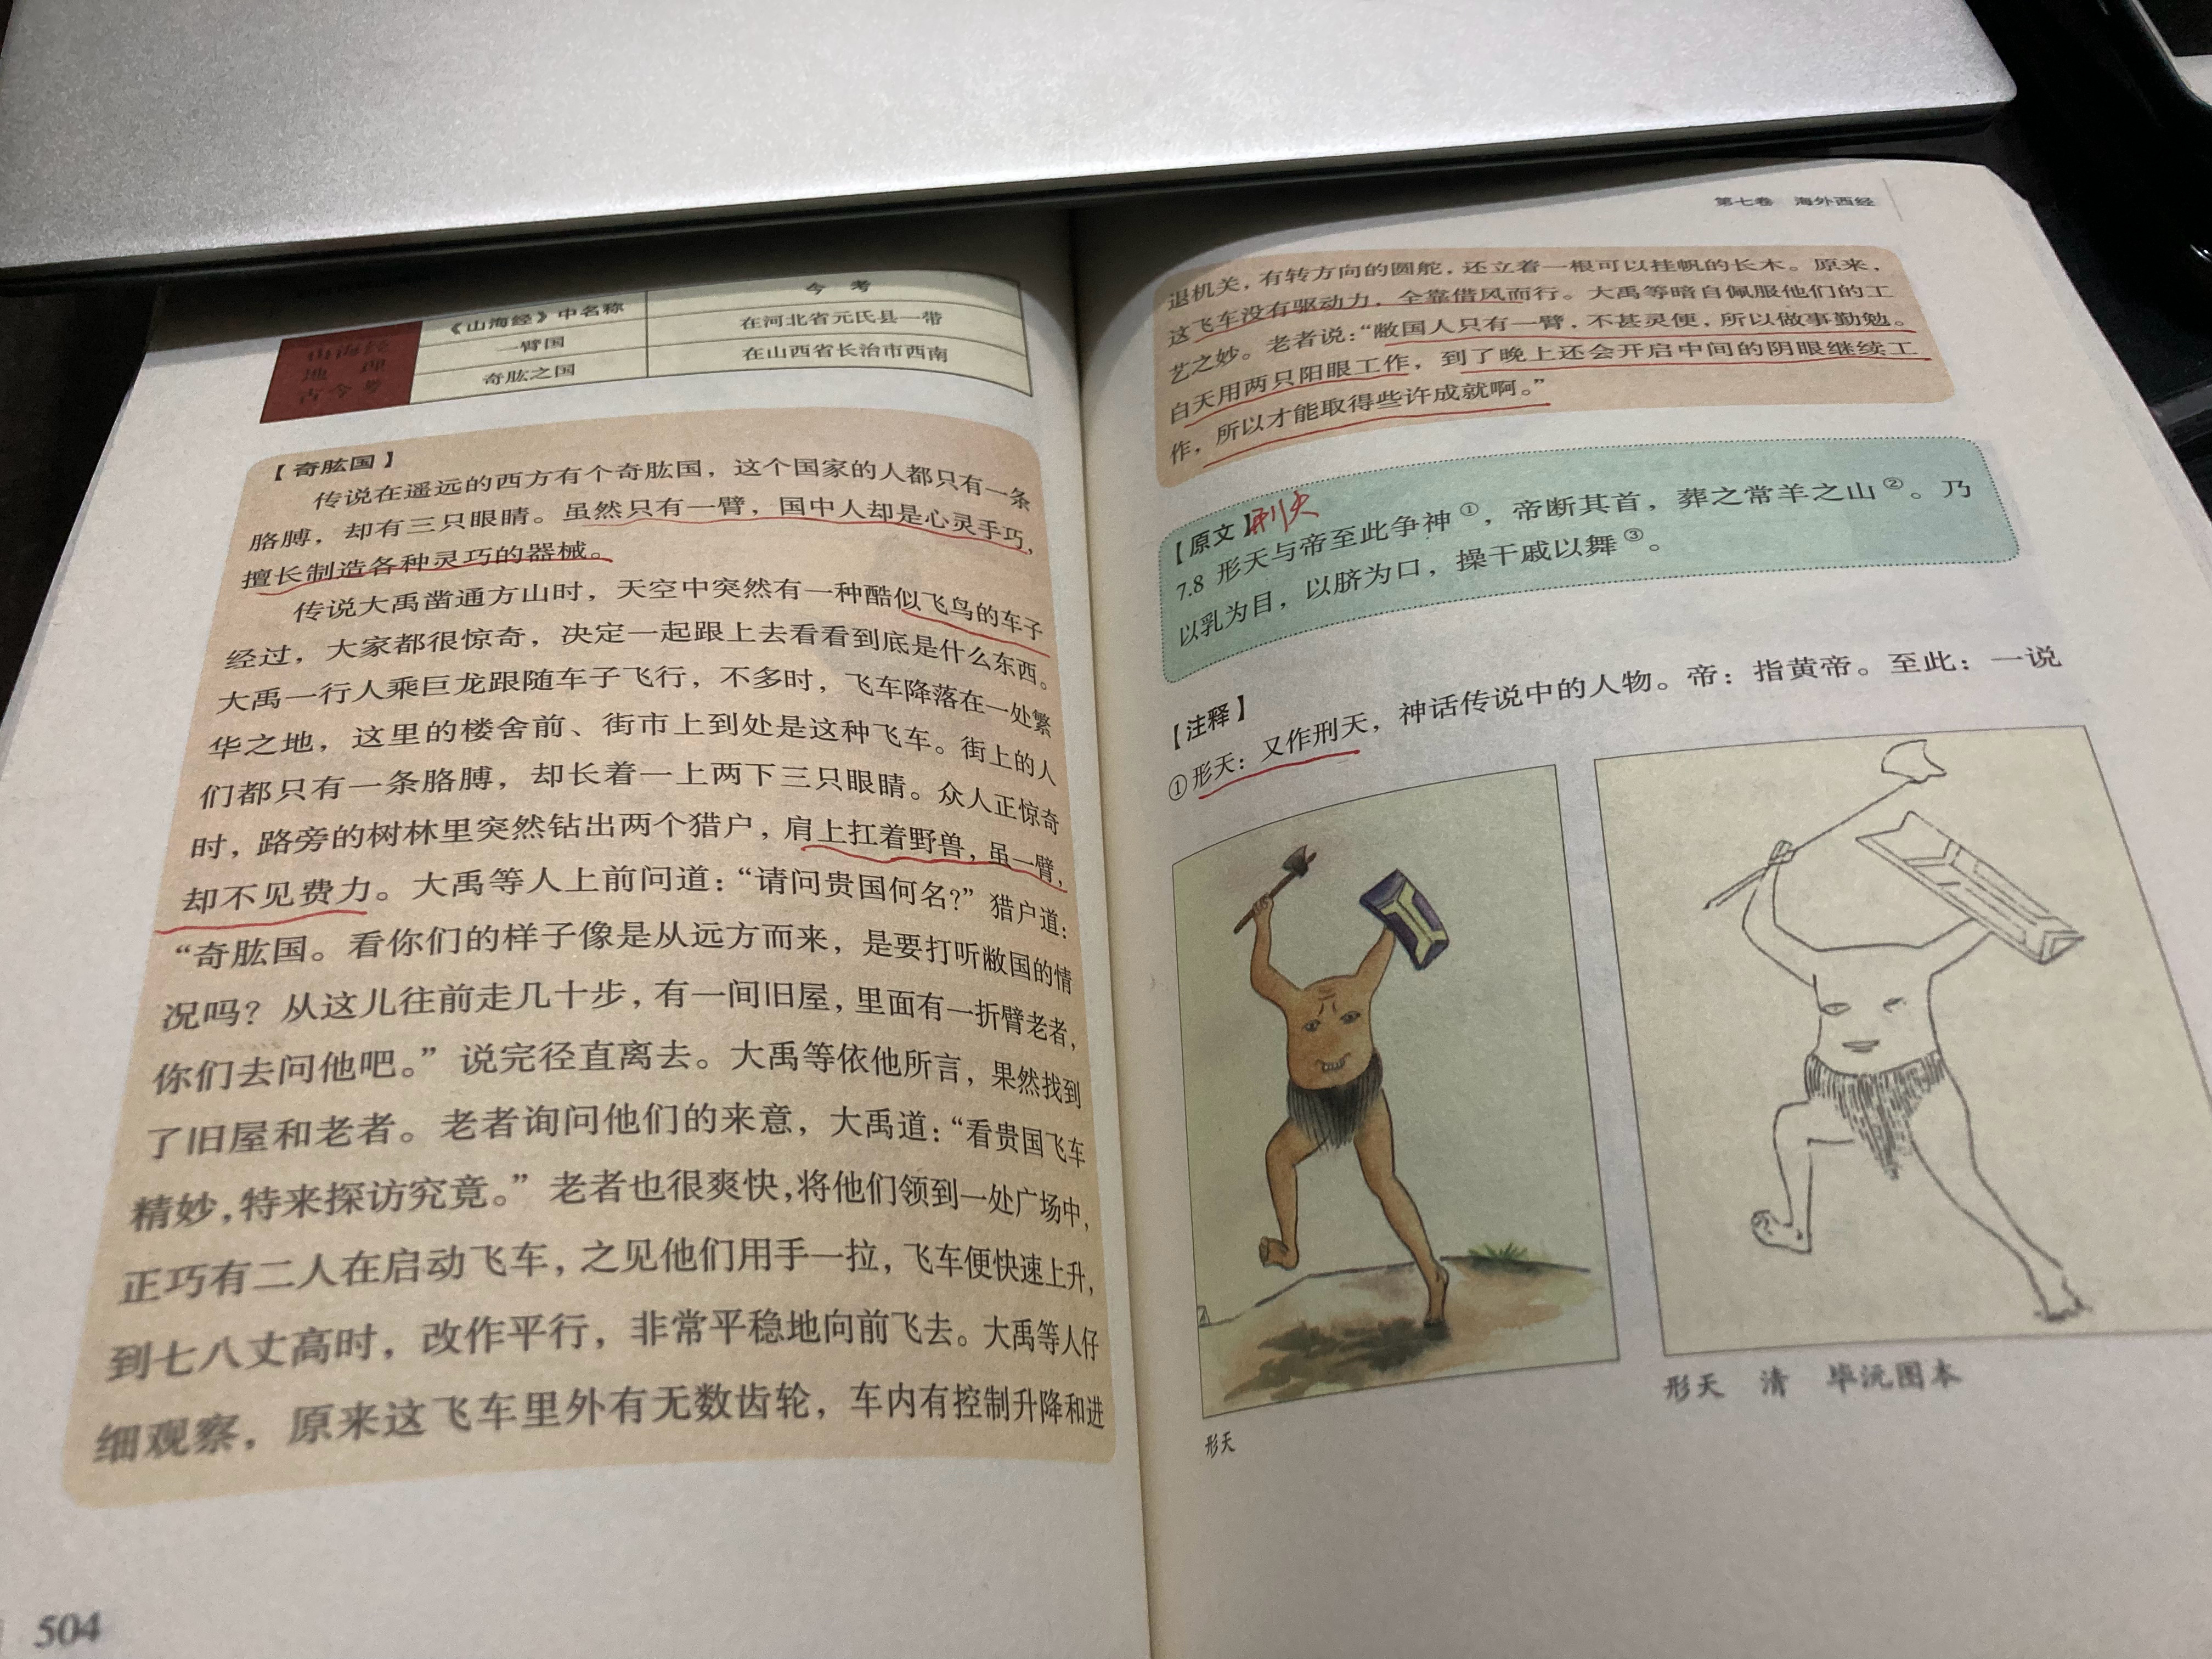 山海经
地理
古今考
《山海经》中名称 今考
一臂国 在河北省元氏县一带
奇肱之国 在山西省长治市西南
【奇肱国】
传说在遥远的西方有个奇肱国，这个国家的人都只有一条
胳膊，却有三只眼睛。虽然只有一臂，国中人却是心灵手巧，
擅长制造各种灵巧的器械。
传说大禹凿通方山时，天空中突然有一种酷似飞鸟的车子
经过，大家都很惊奇，决定一起跟上去看看到底是什么东西。
大禹一行人乘巨龙跟随车子飞行，不多时，飞车降落在一处繁
华之地，这里的楼舍前、街市上到处是这种飞车。街上的人
们都只有一条胳膊，却长着一上两下三只眼睛。众人正惊奇
时，路旁的树林里突然钻出两个猎户，肩上扛着野兽，虽一臂，
却不见费力。大禹等人上前问道：“请问贵国何名？”猎户道：
“奇肱国。看你们的样子像是从远方而来，是要打听敝国的情
况吗？从这儿往前走几十步，有一间旧屋，里面有一折臂老者，
你们去问他吧。”说完径直离去。大禹等依他所言，果然找到
了旧屋和老者。老者询问他们的来意，大禹道：“看贵国飞车
精妙，特来探访究竟。”老者也很爽快，将他们领到一处广场中，
正巧有二人在启动飞车，之见他们用手一拉，飞车便快速上升，
到七八丈高时，改作平行，非常平稳地向前飞去。大禹等人仔
细观察，原来这飞车里外有无数齿轮，车内有控制升降和进
504
第七卷 海外西经
退机关，有转方向的圆舵，还立着一根可以挂帆的长木。原来，
这飞车没有驱动力，全靠借风而行。大禹等暗自佩服他们的工
艺之妙。老者说：“敝国人只有一臂，不甚灵便，所以做事勤勉。
白天用两只阳眼工作，到了晚上还会开启中间的阴眼继续工
作，所以才能取得些许成就啊。”
【原文】刑天
7.8 形天与帝至此争神①，帝断其首，葬之常羊之山②。乃
以乳为目，以脐为口，操干戚以舞③。
【注释】
①形天：又作刑天，神话传说中的人物。帝：指黄帝。至此：一说
形天
形天 清 毕沅图本